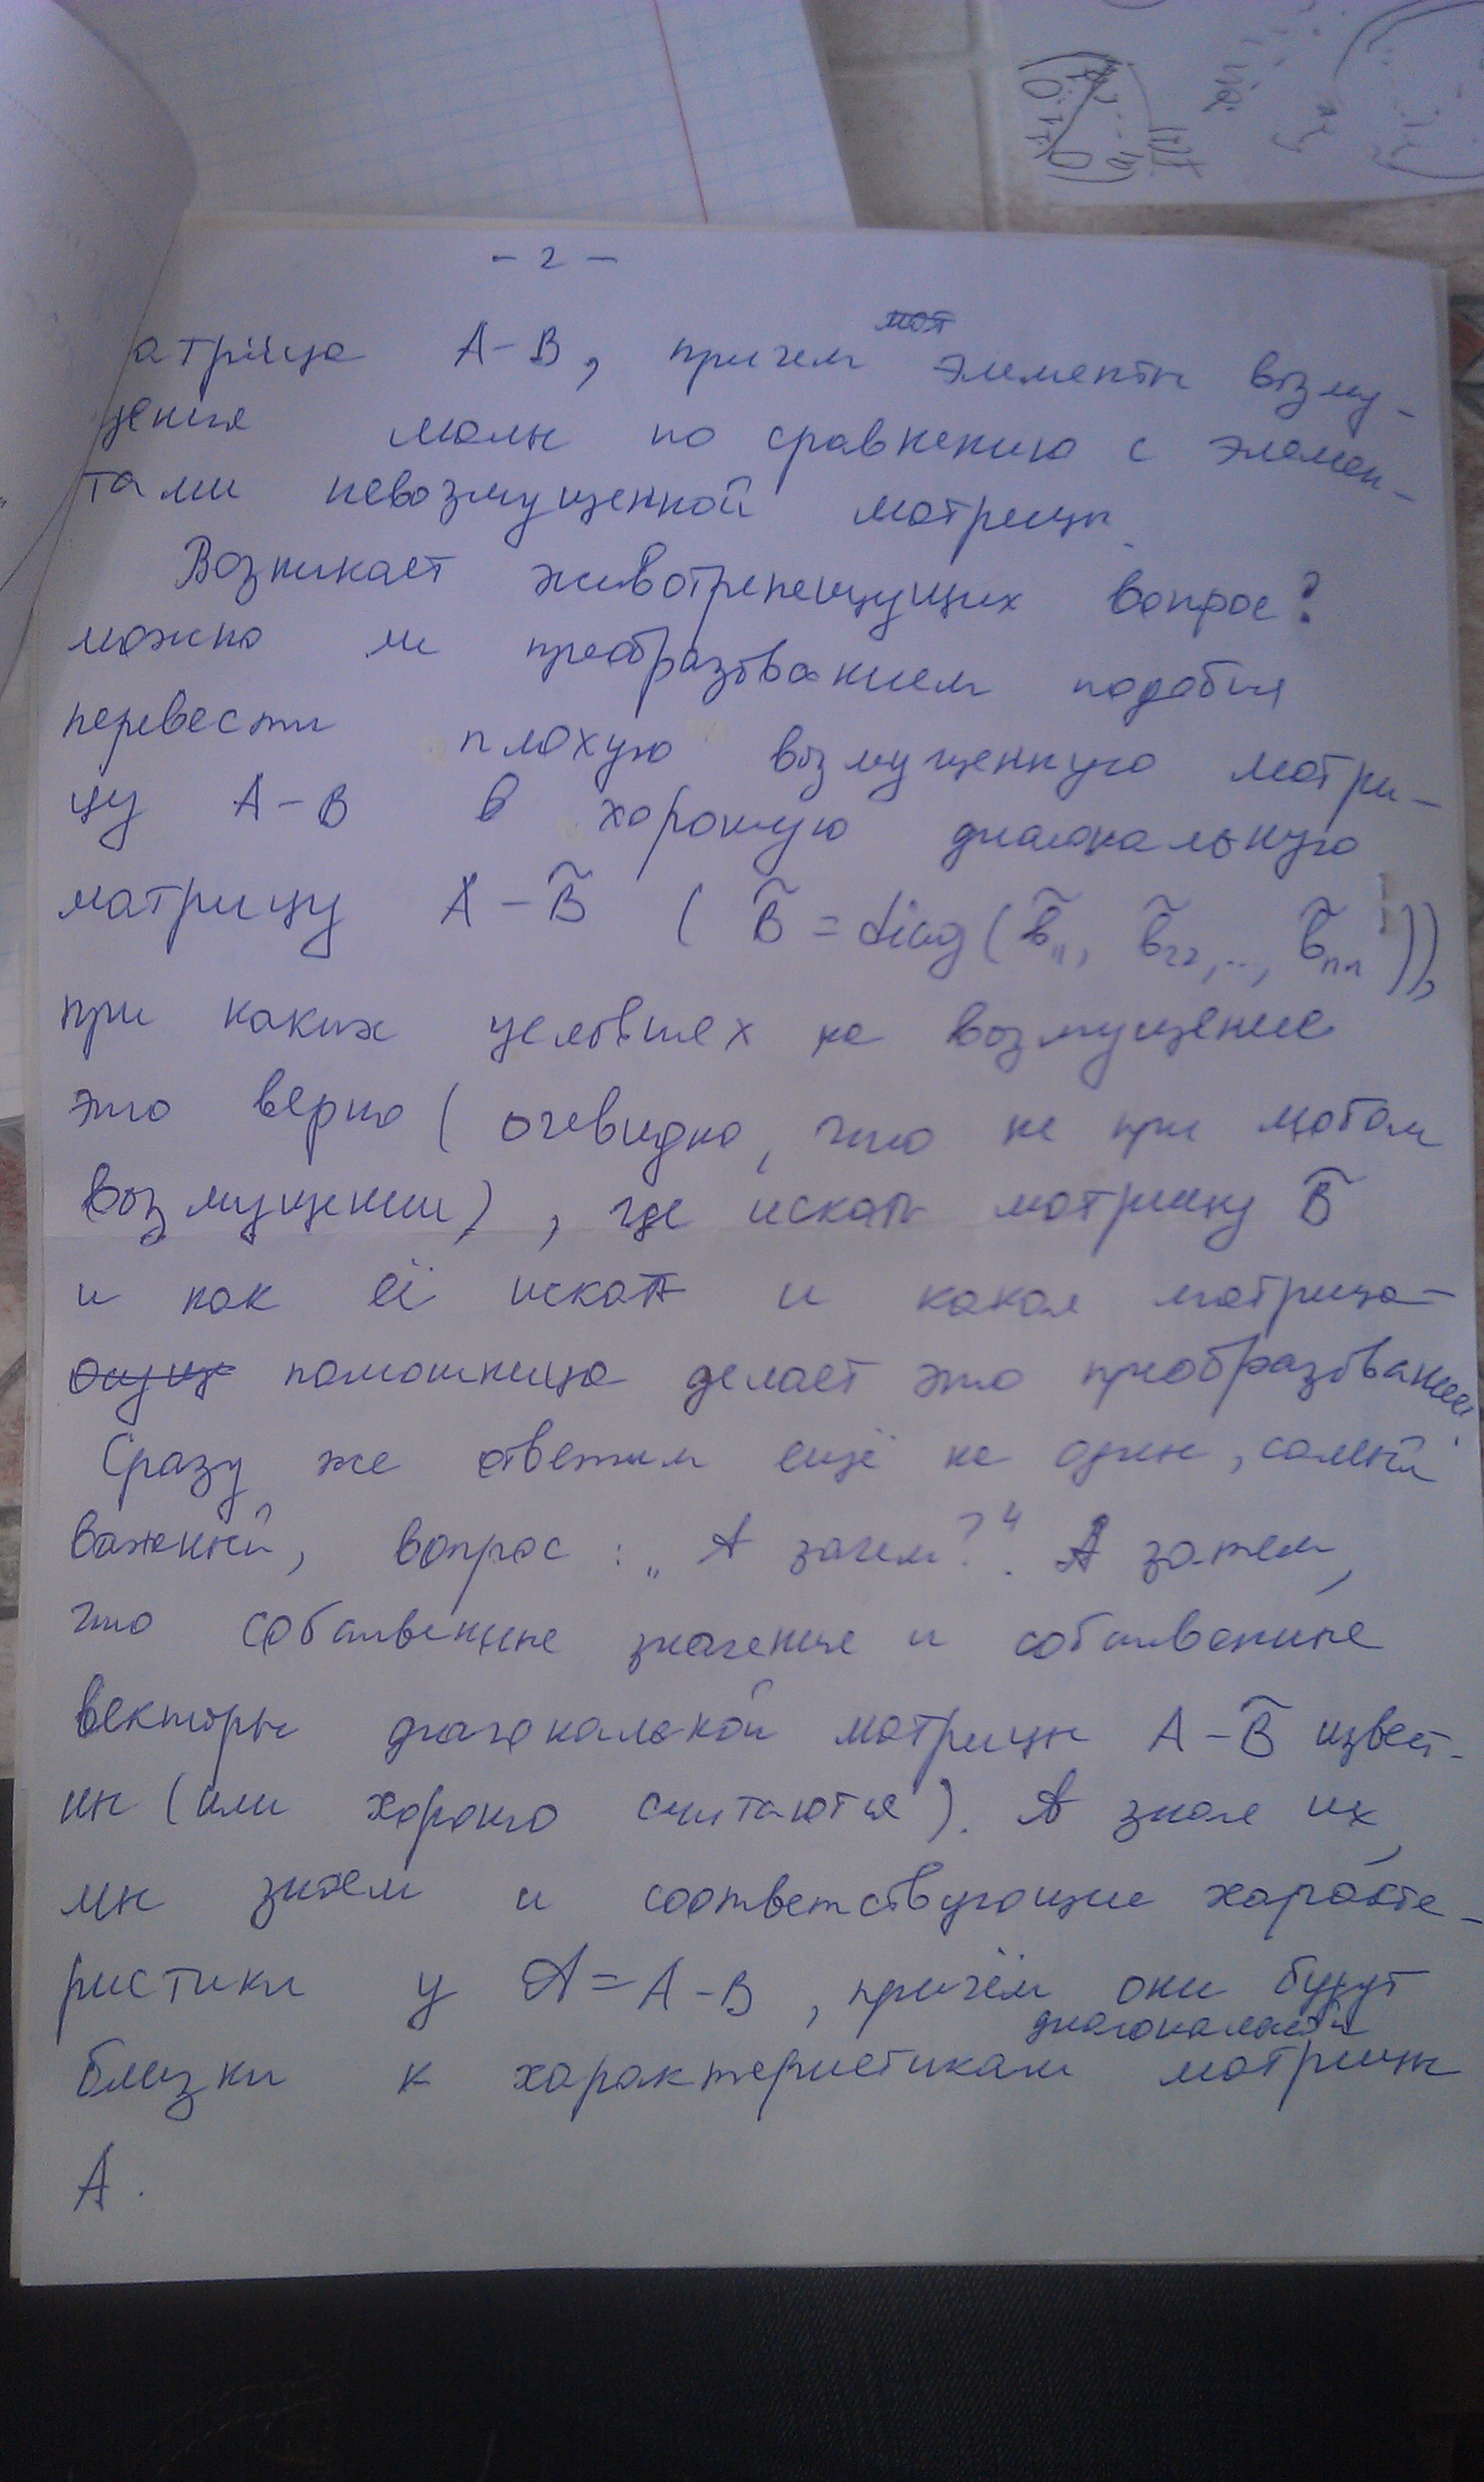 - 2 -
атрица A-B, причем элементы возму-
щения малы по сравнению с элемен-
тами невозмущенной матрицы.
Возникает животрепещущих вопрос?
можно ли преобразованием подобия
перевести плохую возмущенную матри-
цу A-B в хорошую диагональную
матрицу A-B̃ ( B̃ = diag(b̃₁₁, b̃₂₂,..., b̃ₙₙ)),
при каких условиях на возмущение
это верно (очевидно, что не при любом
возмущении), где искать матрицу B̃
и как её искать и какая матрица-
помошница делает это преобразование.
Сразу же ответим ещё на один, самый
важный, вопрос: „А зачем?“. А затем,
что собственные значения и собственные
векторы диагональной матрицы A-B̃ извест-
ны (или хорошо считаются). А зная их,
мы знаем и соответствующие характе-
ристики у 𝒜=A-B, причём они будут
диагональной
близки к характеристикам матрицы
A.